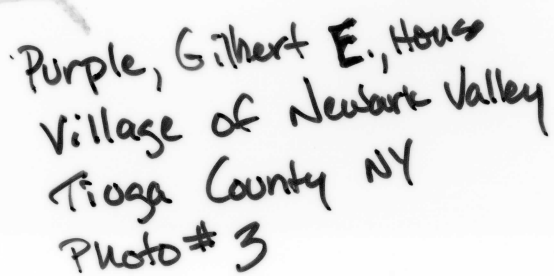 Purple, Gilbert E., House
Village of Newark Valley
Tioga County NY
Photo # 3